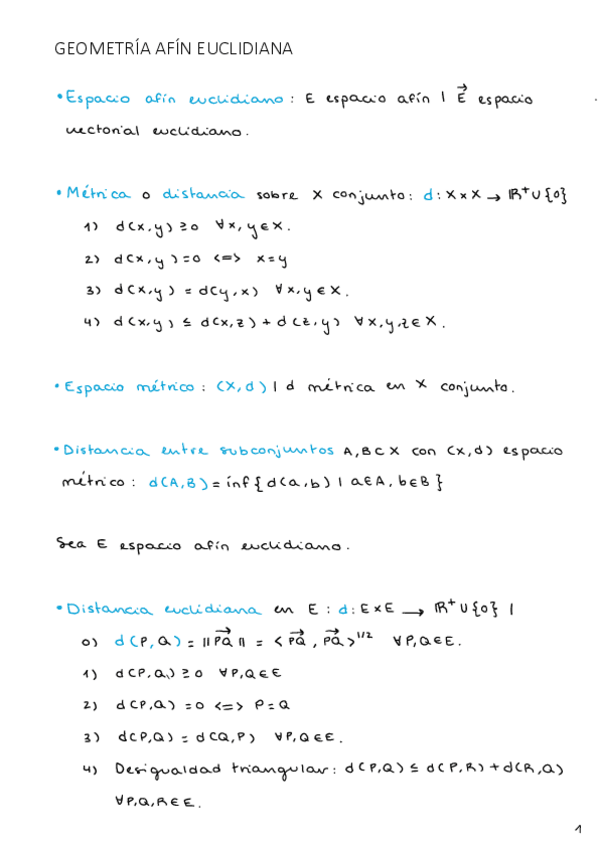 GEOMETRÍA AFÍN EUCLIDIANA
• Espacio afín euclidiano : E espacio afín | E⃗ espacio
vectorial euclidiano.
• Métrica o distancia sobre X conjunto: d: X×X → ℝ⁺∪{0}
1) d(x,y) ≥0 ∀x,y∈X.
2) d(x,y)=0 <=> x=y
3) d(x,y) = d(y,x) ∀x,y∈X.
4) d(x,y) ≤ d(x,z) + d(z,y) ∀x,y,z∈X.
• Espacio métrico : (X,d) | d métrica en X conjunto.
• Distancia entre subconjuntos A,B⊂X con (X,d) espacio
métrico : d(A,B) = ínf{d(a,b) | a∈A, b∈B}
Sea E espacio afín euclidiano.
• Distancia euclidiana en E : d: E×E → ℝ⁺∪{0} |
0) d(P,Q) = ||PQ⃗|| = <PQ⃗, PQ⃗>^1/2 ∀P,Q∈E.
1) d(P,Q) ≥0 ∀P,Q∈E
2) d(P,Q) =0 <=> P=Q
3) d(P,Q) = d(Q,P) ∀P,Q∈E.
4) Desigualdad triangular: d(P,Q) ≤ d(P,R) + d(R,Q)
∀P,Q,R∈E.
1